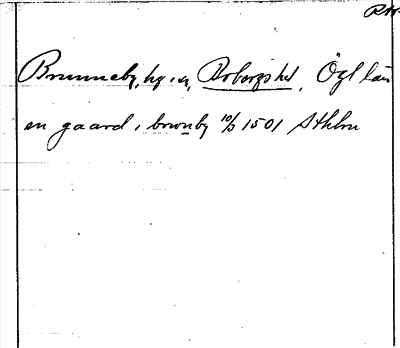 RAP.
Brunneby, by i a, Bobergs hd, Ögl län
en gaard i brwnby 10/3 1501 Sthlm